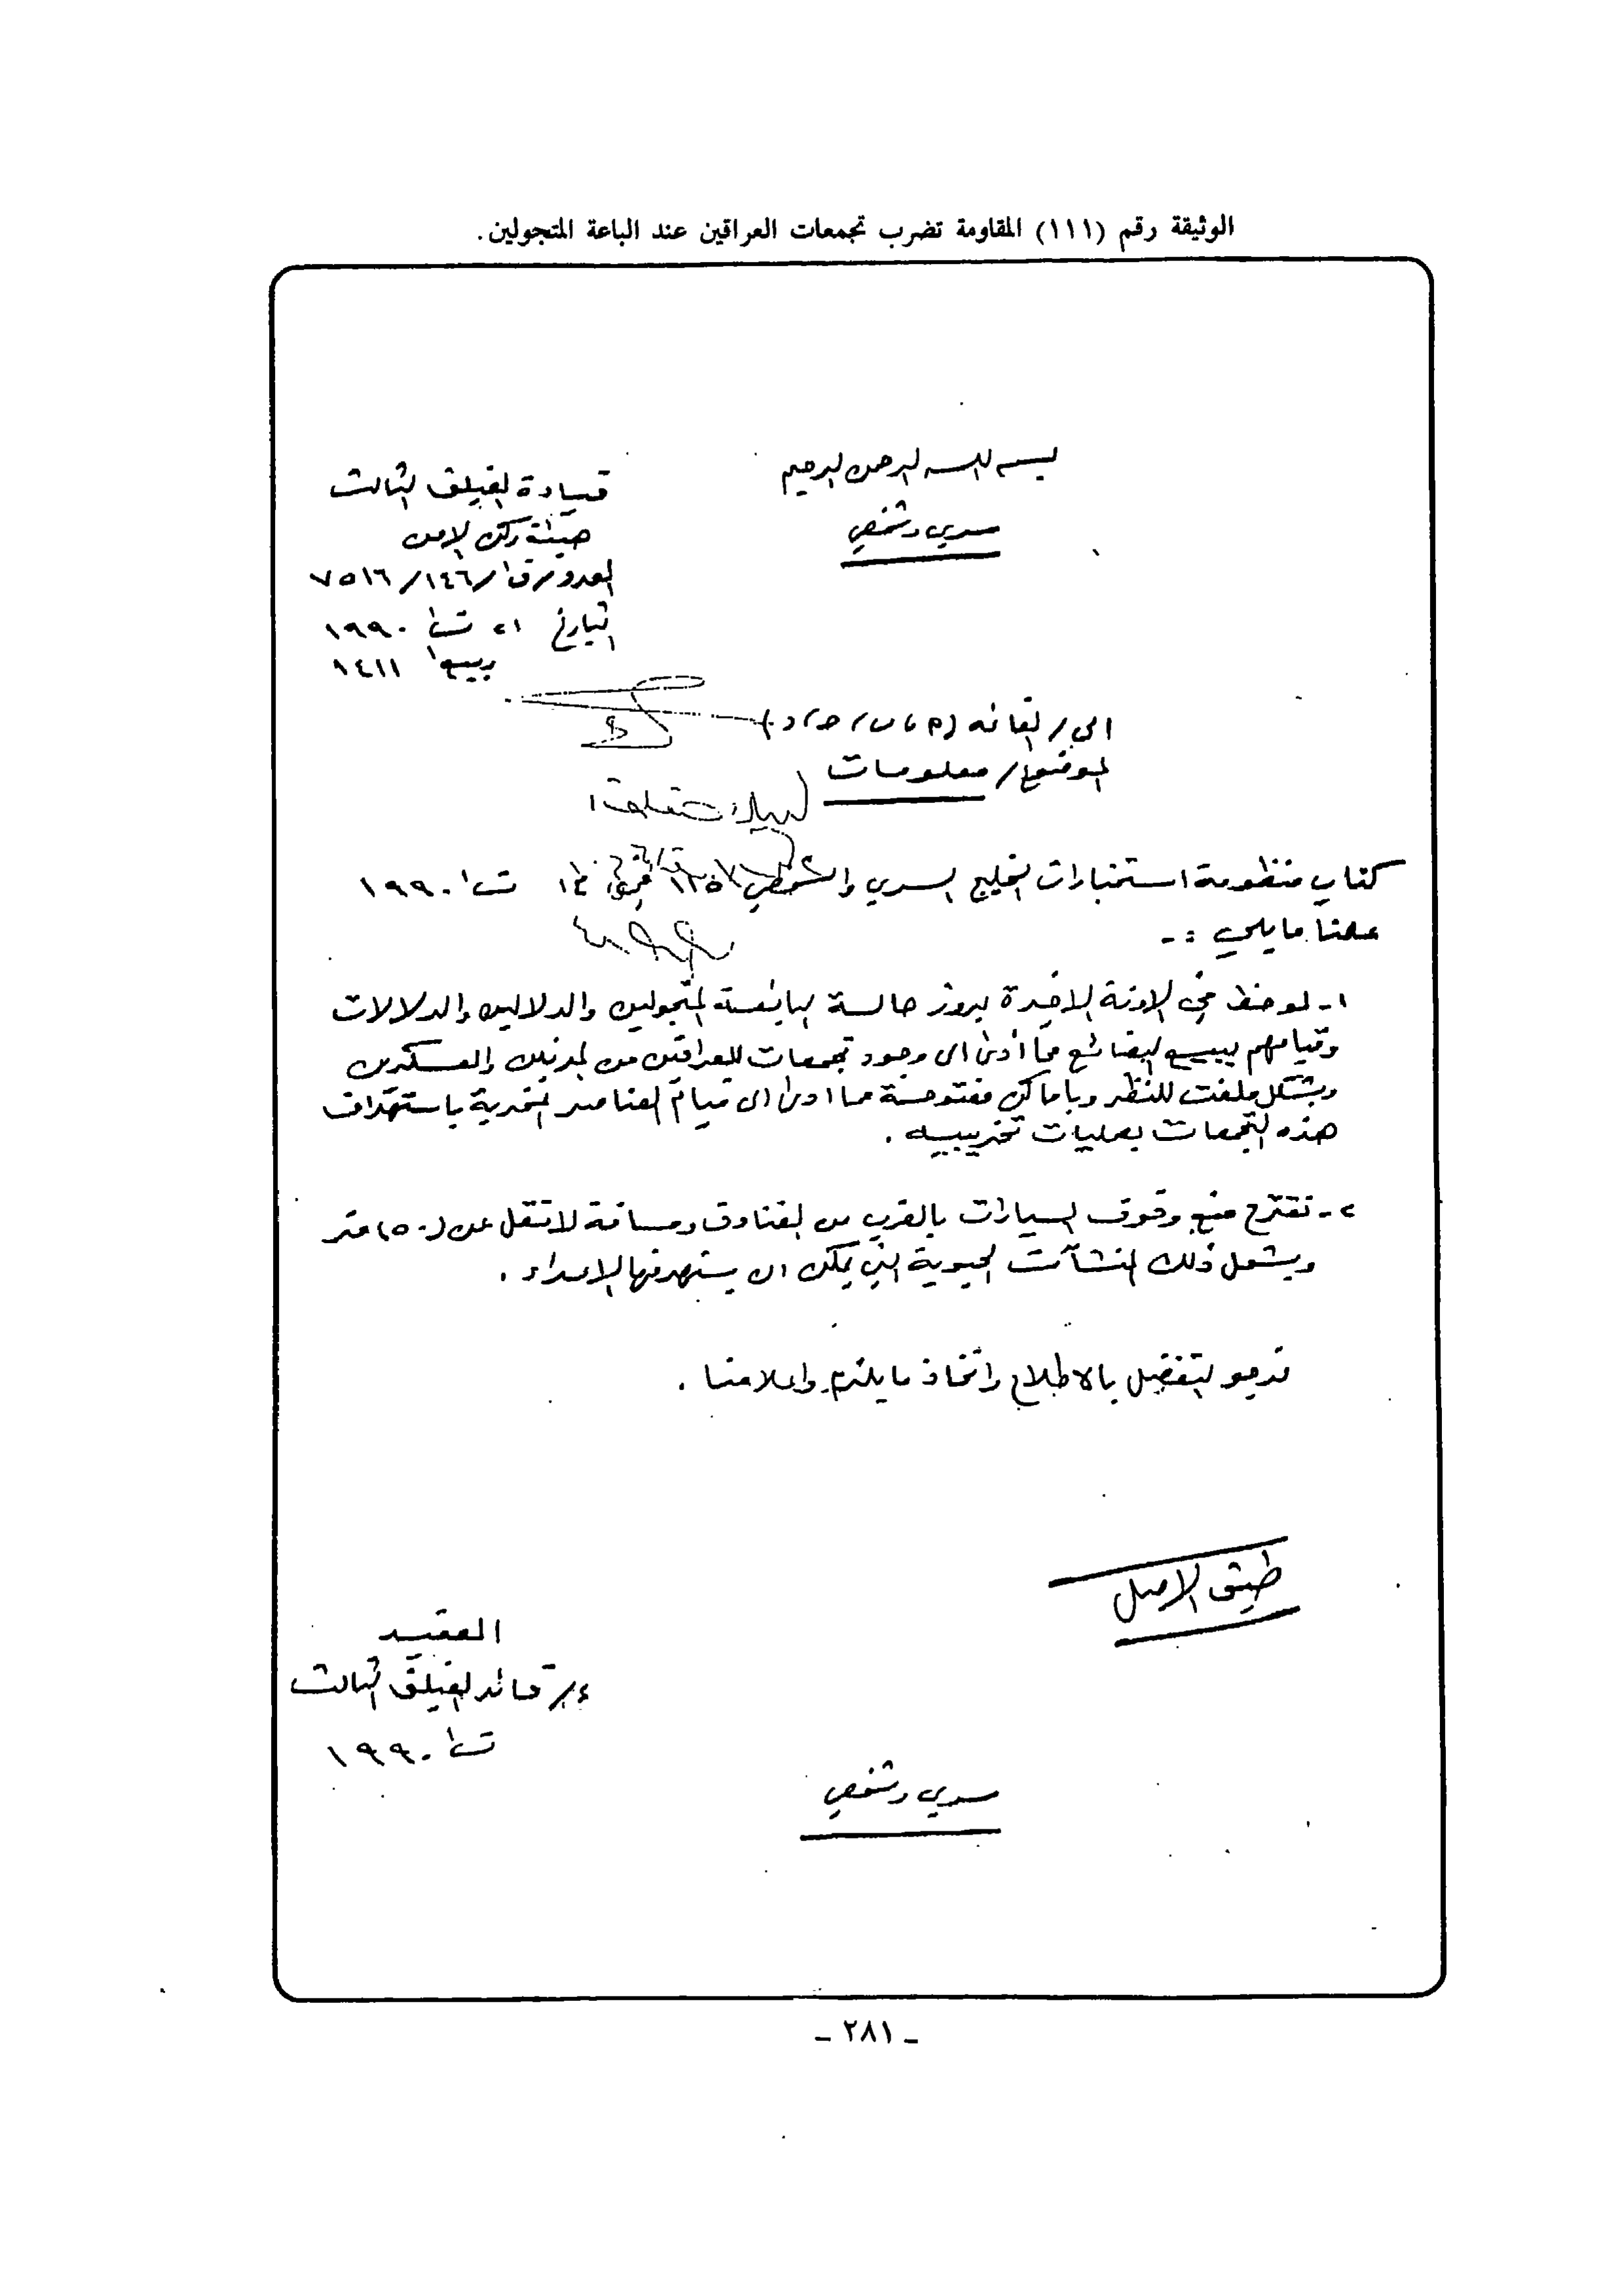 الوثيقة رقم (١١١) المقاومة تضرب تجمعات العراقين عند الباعة المتجولين.
بسم الله الرحمن الرحيم
سري وشخصي
قيادة الفيلق الثالث
هيئة ركن الامن
العدد/ق١/١٤٦/٧٥١٦
التاريخ ٢١ ت١ ١٩٩٠
ربيع١ ١٤١١
الى/ القائمة
الموضوع/ معلومات
كتاب منظومة استخبارات الخليج السري والشخصي ١٢٥١ في ١٣ ت١ ١٩٩٠
علمنا ما يلي :-
١- لوحظ في الاونة الاخيرة بروز حالة البائعة المتجولين والدلالين والدلالات
وقيامهم ببيع البضائع مما أدى الى وجود تجمعات للعراقين من المدنيين والعسكرين
وبشكل ملفت للنظر وباماكن مفتوحة مما ادى الى قيام العناصر المخربة باستهداف
هذه التجمعات بعمليات تخريبيه .
٢- نقترح منع وقوف السيارات بالقرب من الفنادق ومسافة لا تقل عن (٥٠) متر
ويشمل ذلك المنشآت الحيوية التي يمكن ان يستهدفها الاعداء .
نرجو التفضل بالاطلاع واتخاذ ما يلزم واعلامنا .
طبق الاصل
العقيد
ع/ قائد الفيلق الثالث
ت١ ١٩٩٠
سري وشخصي
- ٢٨١ -